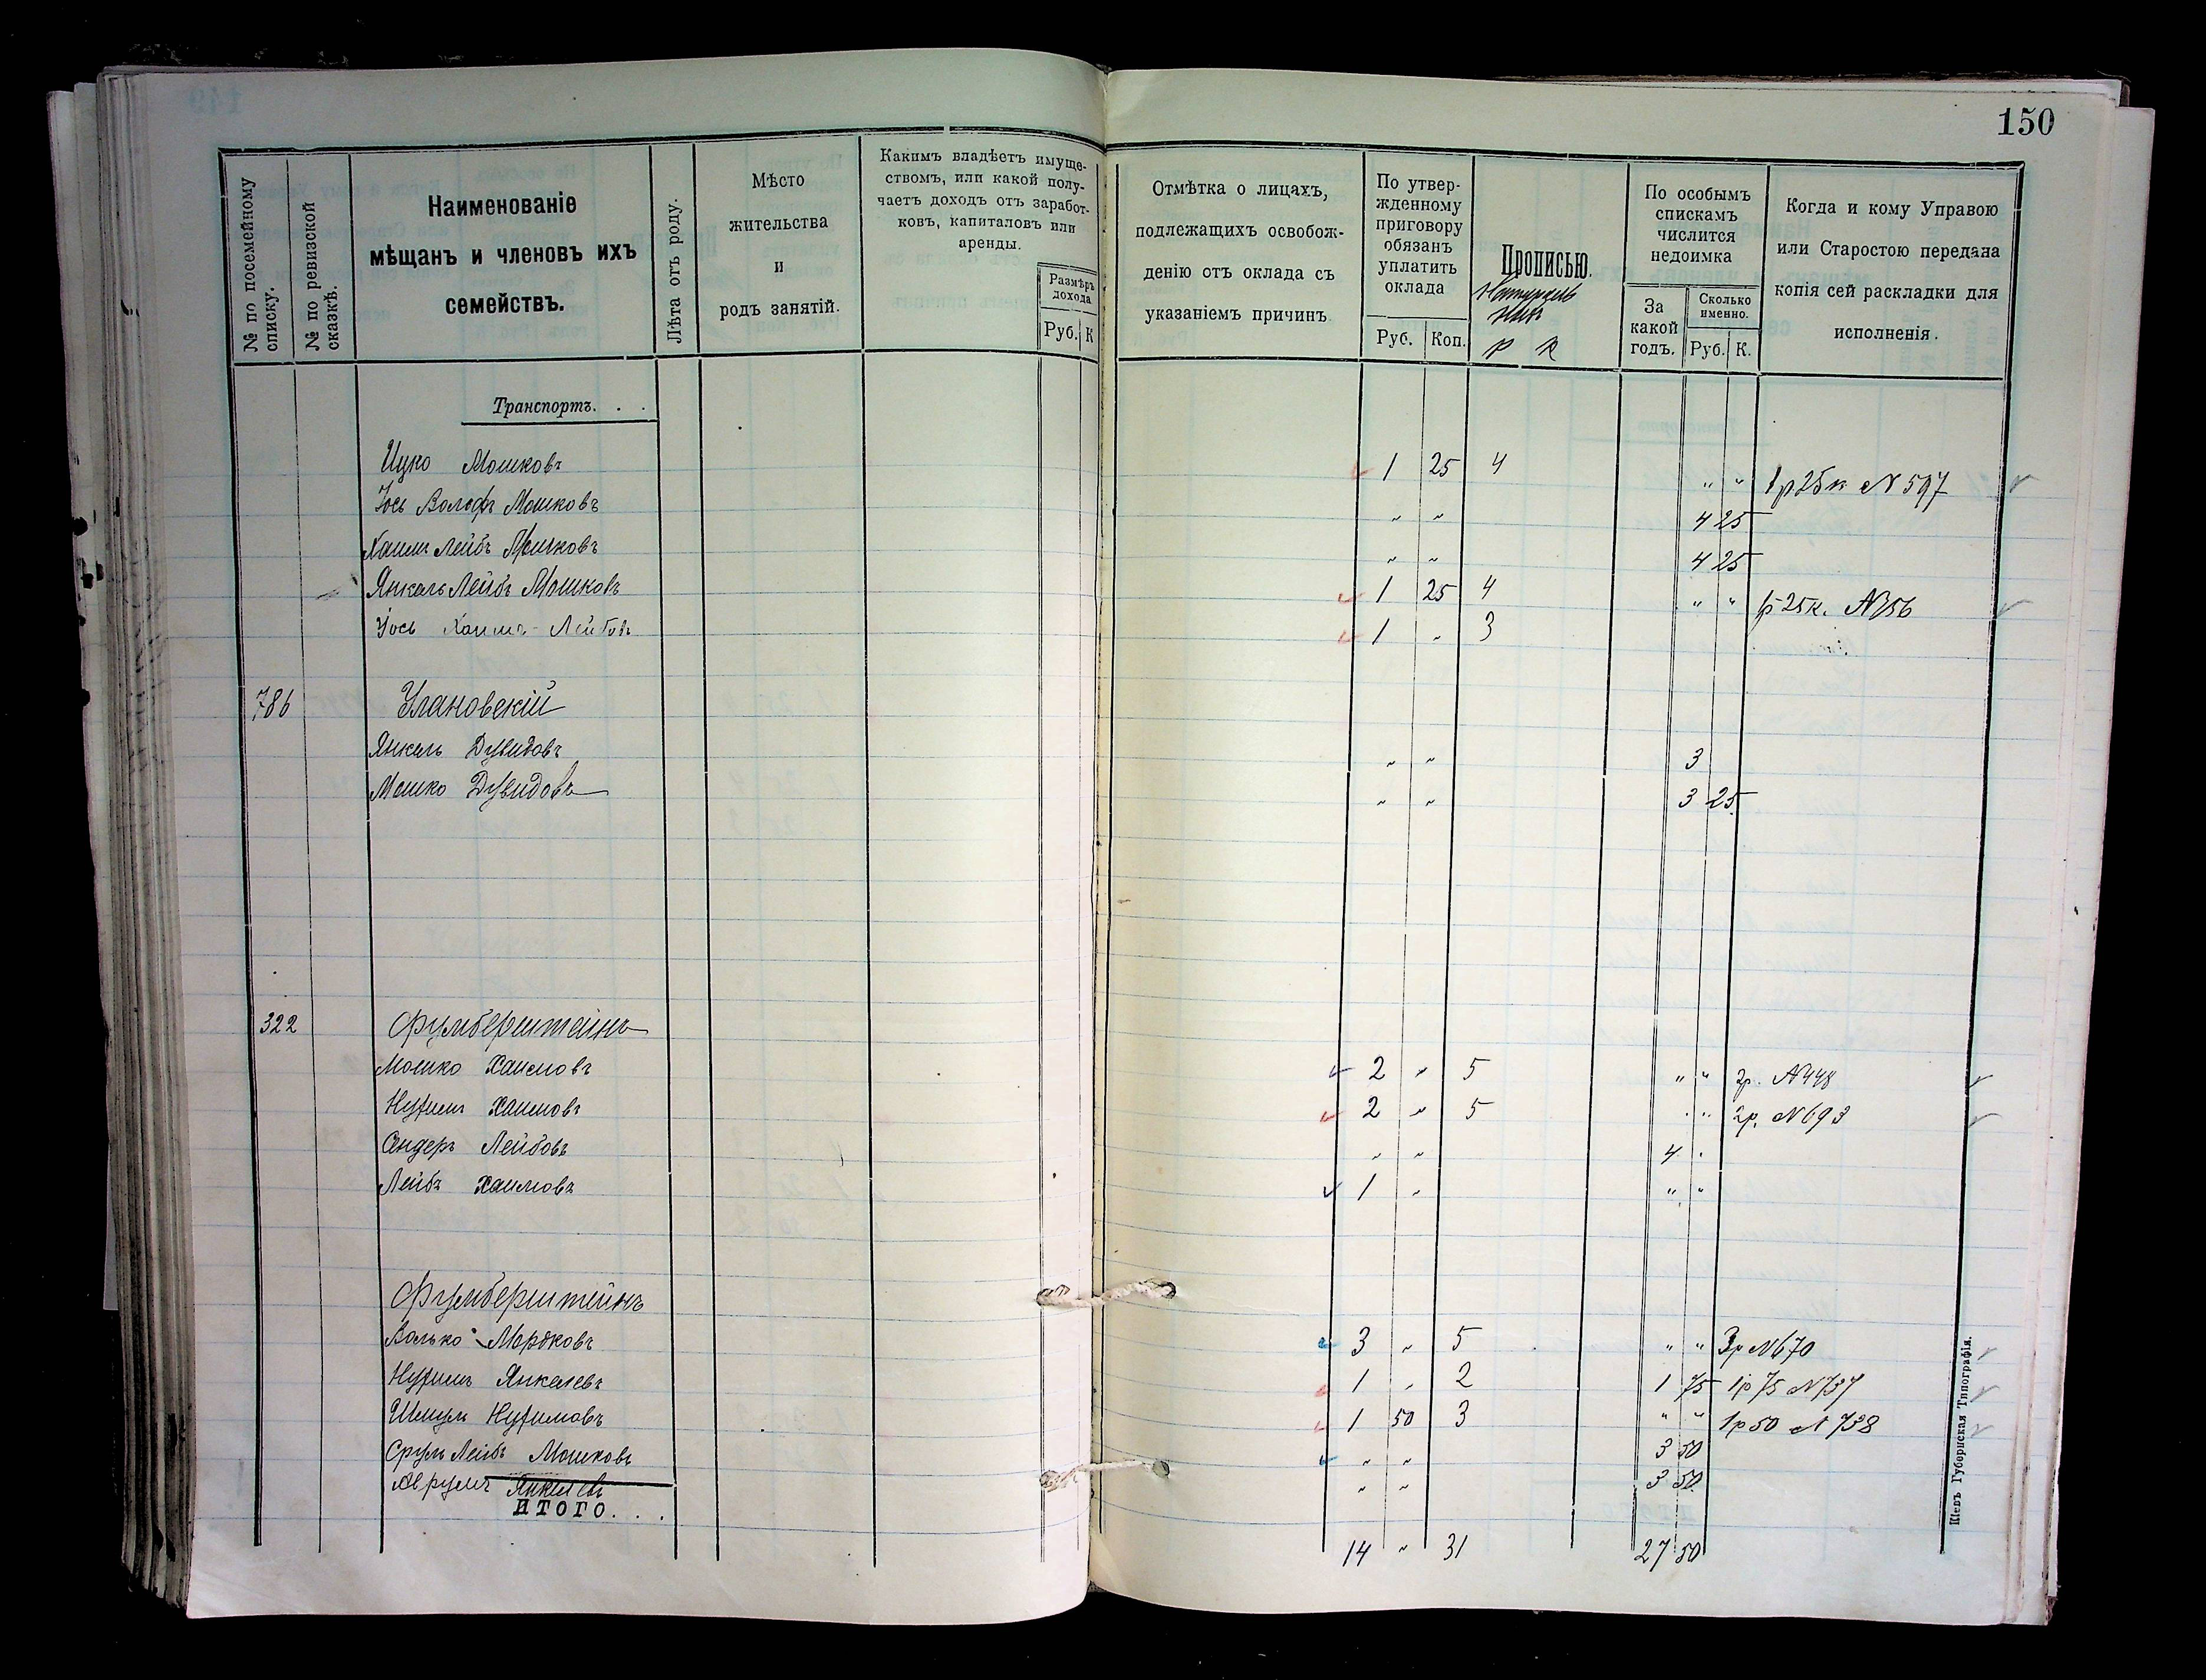 150
№ по посемейному списку.
№ по ревизской сказкѣ.
Наименованіе мѣщанъ и членовъ ихъ семействъ.
Лѣта отъ роду.
Мѣсто жительства и родъ занятій.
Какимъ владѣетъ имуще-
ствомъ, или какой полу-
чаетъ доходъ отъ заработ-
ковъ, капиталовъ или
аренды.
Размѣръ дохода
Руб. К
Отмѣтка о лицахъ,
подлежащихъ освобож-
денію отъ оклада съ
указаніемъ причинъ
По утвер-
жденному
приговору
обязанъ
уплатить
оклада
Руб. Коп.
Прописью.
Р К
По особымъ
спискамъ
числится
недоимка
За какой годъ.
Сколько именно.
Руб. К.
Когда и кому Управою
или Старостою передана
копія сей раскладки для
исполненія.
Транспортъ. . .
Ицко Мошковъ 1 25 4 " " 1р 25к N 597
Іось Волфъ Мошковъ " " 4 25
Хаимъ Лейбъ Мошковъ " " 4 25
Янкель Лейбъ Мошковъ 1 25 4 " " 1р 25к. N356
Іось Хаимъ-Лейбовъ 1 " 3
786 Улановскій
Янкель Дувидовъ " " 3
Мошко Дувидовъ " " 3 25
322 Фумберштейнъ
Мошко Хаимовъ 2 " 5 " " 2р. N448
Нухимъ Хаимовъ 2 " 5 " " 2р. N693
Сендеръ Лейбовъ " " 4 "
Лейбъ Хаимовъ 1 " " "
Фумберштейнъ
Волько Мордковъ 3 " 5 " " 3р N670
Нухимъ Янкелевъ 1 " 2 1 75 1р 75 N737
Шмуль Нухимовъ 1 50 3 " " 1р 50 N 738
Сруль Лейбъ Мошковъ " " 3 50
Аврумъ Янкелевъ " " 3 50
ИТОГО. . .
14 " 31 27 50
Кіевъ Губернская Типографія.